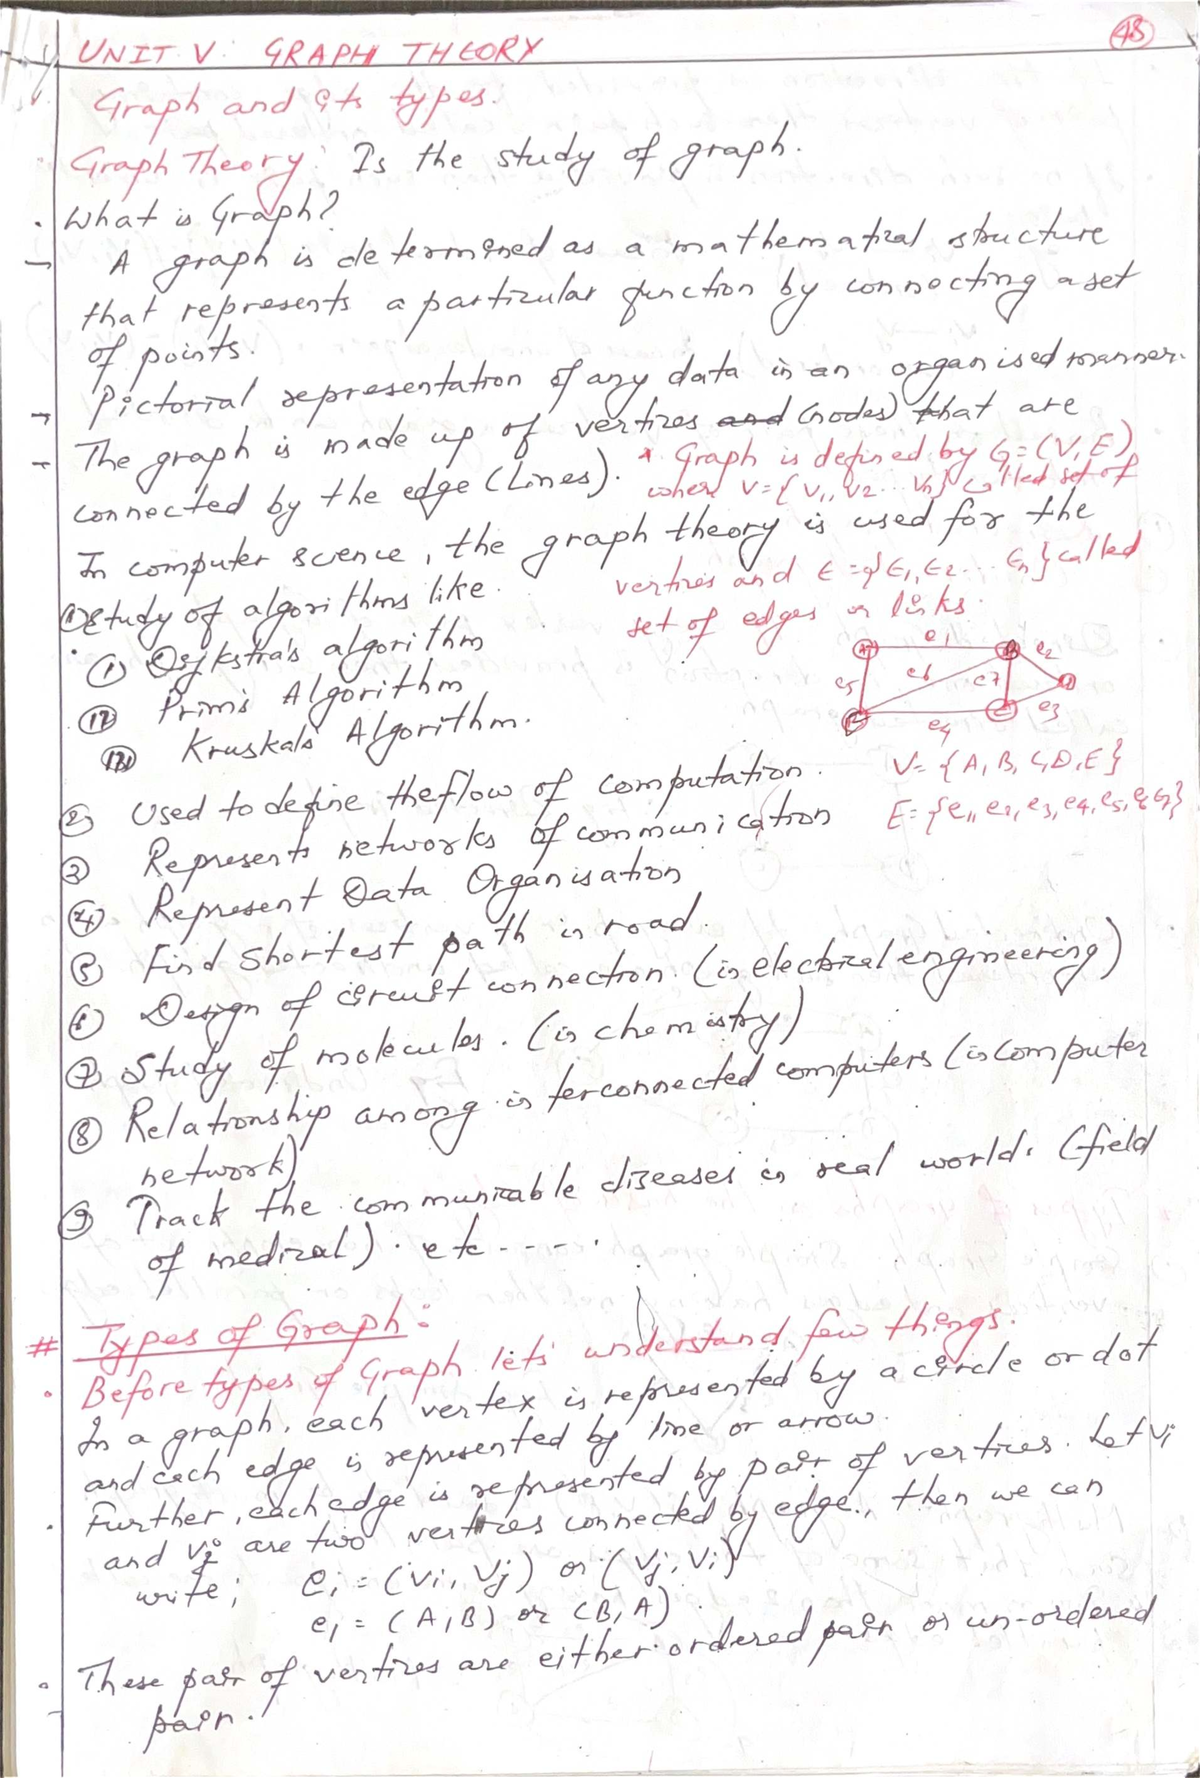 48
UNIT. V: GRAPH THEORY
Graph and its types.
Graph Theory: Is the study of graph.
What is Graph?
A graph is determined as a mathematical structure
that represents a particular function by connecting a set
of points.
Pictorial representation of any data in an organised manner.
The graph is made up of vertices and (nodes) that are
connected by the edge (Lines).
* Graph is defined by G=(V, E)
where V={V1, V2... Vn} called set of
vertices and E={E1, E2... En} called
set of edges or links.
In computer science, the graph theory is used for the
① Study of algorithms like.
(i) Dijkstra's algorithm
(ii) Prim's Algorithm
(iii) Kruskal's Algorithm.
A e1 B e2
e5 e6 e7 D
E e4 C e3
V= {A, B, C, D, E}
E= {e1, e2, e3, e4, e5, e6, e7}
② Used to define the flow of computation.
③ Represents networks of communication
④ Represent Data Organisation
⑤ Find shortest path in road.
⑥ Design of circuit connection. (in electrical engineering)
⑦ Study of molecules. (in chemistry)
⑧ Relationship among interconnected computers (in computer
network)
⑨ Track the communicable diseases in real world. (field
of medical). etc-----.
# Types of Graph:
Before types of Graph lets' understand few things.
In a graph, each vertex is represented by a circle or dot
and each edge is represented by line or arrow.
Further, each edge is represented by pair of vertices. Let Vi
and Vj are two vertices connected by edge., then we can
write; ei = (Vi, Vj) or (Vj, Vi)
e1 = (A, B) or (B, A).
These pair of vertices are either ordered pair or un-ordered
pair.